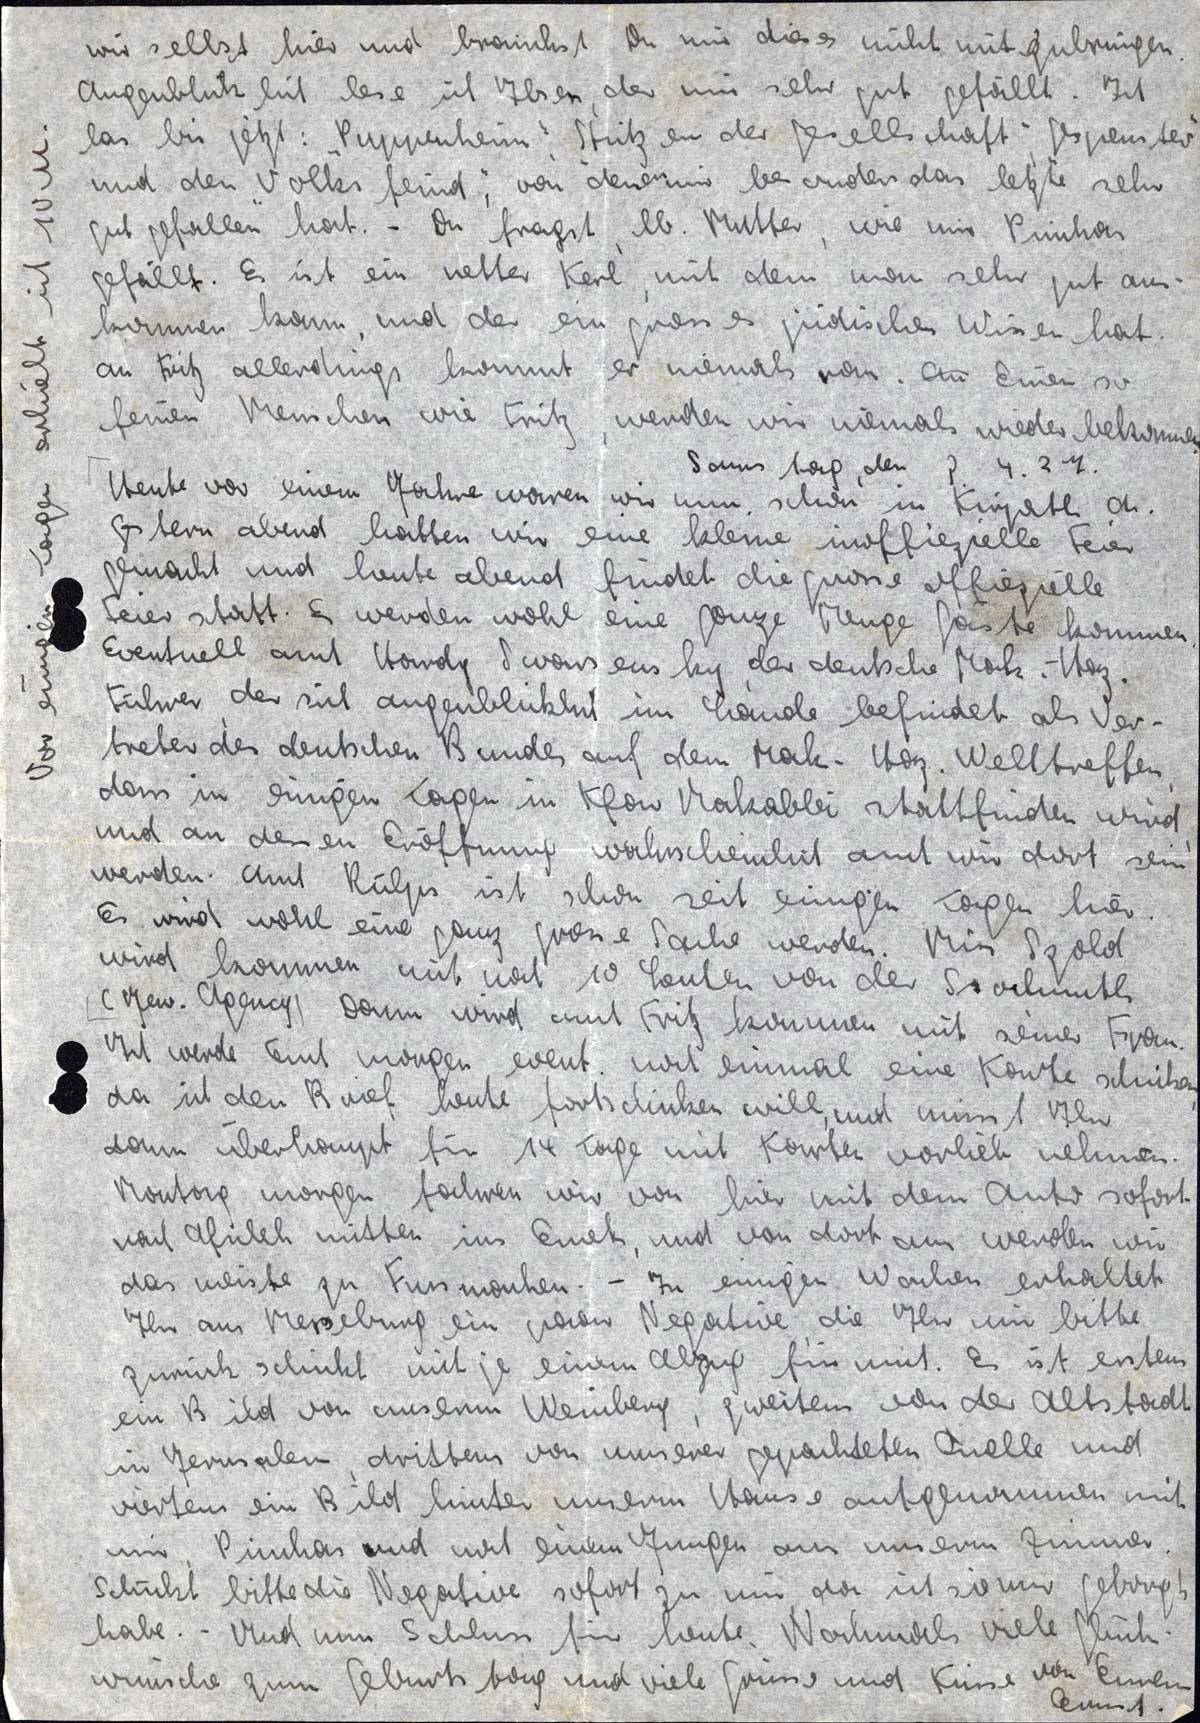 wir selbst hier und brauchst Du mir dieses nicht mitzubringen.
Augenblicklich lese ich Ibsen, der mir sehr gut gefällt. Ich
las bis jetzt: "Puppenheim", Stützen der Gesellschaft", Gespenster"
und den Volksfeind", von denen mir besonders das letzte sehr
gut gefallen hat. - Du fragst, lb. Mutter, wie mir Pinchas
gefällt. Es ist ein netter Kerl, mit dem man sehr gut aus-
kommen kann, und der ein grosses jüdisches Wissen hat.
An Fritz allerdings kommt er niemals ran. Einen so
feinen Menschen wie Fritz, werden wir niemals wieder bekommen.
Samstag, den 4. 37.
Heute vor einem Jahre waren wir nun schon in Kirjath A.
Gestern abend hatten wir eine kleine inoffiezielle Feier
gemacht und heute abend findet die grosse offiezielle
Feier statt. Es werden wohl eine ganze Menge Gäste kommen.
Eventuell auch Hardy Swarsensky, der deutsche Mak.-Haz.
Führer, der sich augenblicklich im Lande befindet als Ver-
treter des deutschen Bundes auf dem Mak-Haz. Welttreffen,
dass in einigen Tagen in Kfar Makabbi stattfinden wird
und an dessen Eröffnung wahrscheinlich auch wir dort sein
werden. Auch Rülfs ist schon seit einigen Tagen hier.
Es wird wohl eine ganz grosse Sache werden. Miss Szold
wird kommen mit noch 10 Leuten von der Sochnuth
(Jew. Agency) Dann wird auch Fritz kommen mit seiner Frau.
Ich werde Euch morgen event. noch einmal eine Karte schicken,
da ich den Brief heute fortschicken will, und müsst Ihr
dann überhaupt für 14 Tage mit Karten vorlieb nehmen.
Montag morgen fahren wir von hier mit dem Auto sofort
nach Afuleh mitten ins Emek, und von dort aus werden wir
das meiste zu Fuss machen. - In einigen Wochen erhaltet
Ihr aus Merseburg ein paar Negative, die Ihr mir bitte
zurück schickt mit je einem Abzug für mich. Es ist erstens
ein Bild von unserm Weinberg, zweitens von der Altstadt
in Jerusalem, drittens von unserer gepachteten Quelle und
viertens ein Bild hinter unserm Hause aufgenommen mit
mir, Pinchas und noch einem Jungen aus unserm Zimmer.
Schickt bitte die Negative sofort zu mir, da ich sie nur geborgt
habe. - Und nun Schluss für heute. Nochmals viele Glück-
wünsche zum Geburtstag und viele Grüsse und Küsse von Eurem
Ernst.
Vor einigen Tagen erhielt ich 10 M.